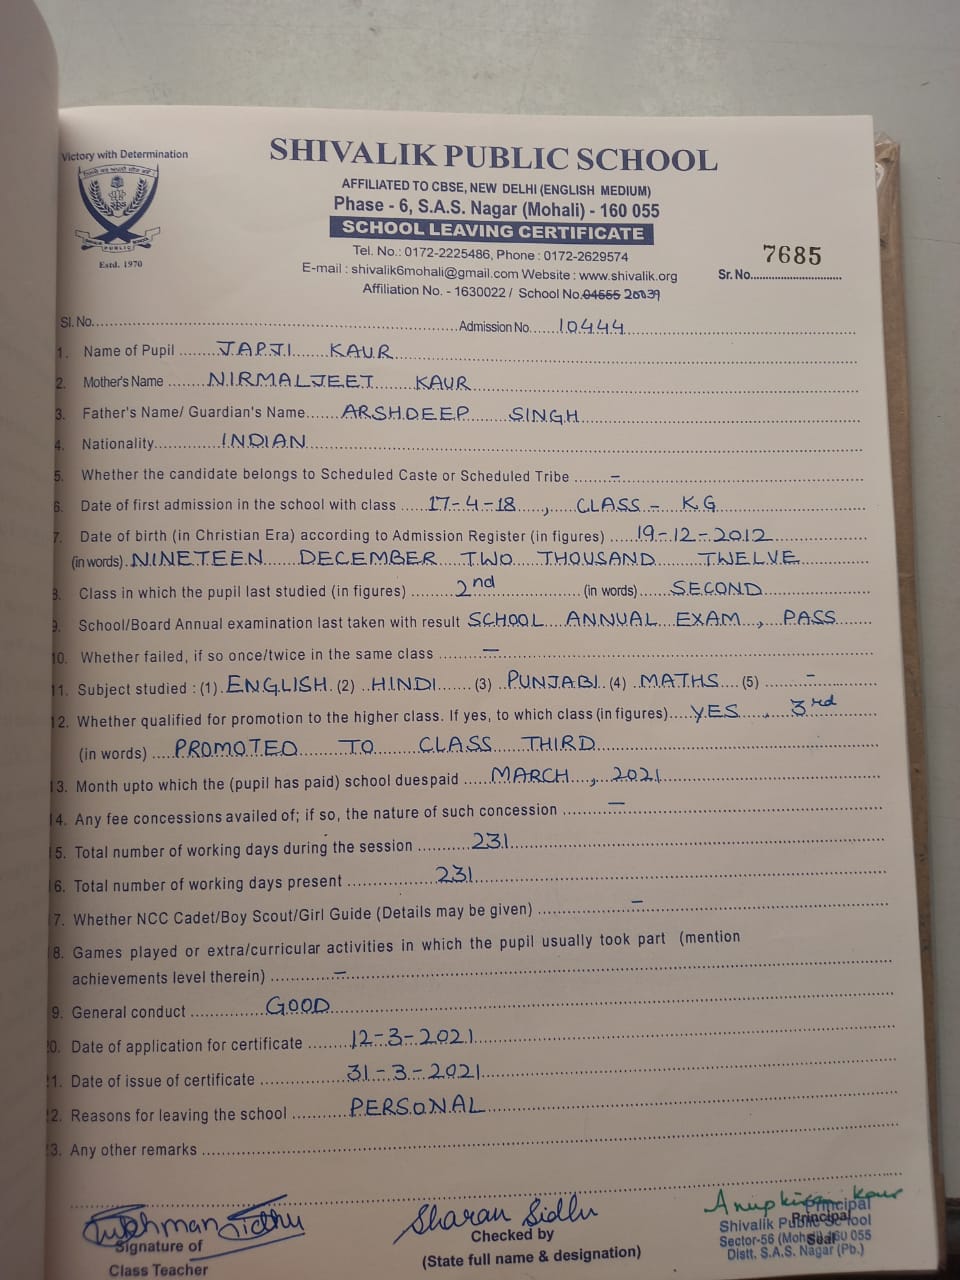 Victory with Determination
PUBLIC
Estd. 1970
SHIVALIK PUBLIC SCHOOL
AFFILIATED TO CBSE, NEW DELHI (ENGLISH MEDIUM)
Phase - 6, S.A.S. Nagar (Mohali) - 160 055
SCHOOL LEAVING CERTIFICATE
Tel. No.: 0172-2225486, Phone : 0172-2629574
E-mail : shivalik6mohali@gmail.com Website : www.shivalik.org
Affiliation No. - 1630022 / School No.04555 20039
7685
Sr. No..............................
Sl. No............................................................Admission No......10444......
1. Name of Pupil ........JAPJI KAUR
2. Mother's Name ........NIRMALJEET KAUR
3. Father's Name/ Guardian's Name......ARSHDEEP SINGH
4. Nationality..............INDIAN
5. Whether the candidate belongs to Scheduled Caste or Scheduled Tribe ......–
6. Date of first admission in the school with class ....17-4-18...., CLASS - K.G
7. Date of birth (in Christian Era) according to Admission Register (in figures) ......19-12-2012
(in words). NINETEEN DECEMBER TWO THOUSAND TWELVE
8. Class in which the pupil last studied (in figures) ........2nd............(in words)......SECOND
9. School/Board Annual examination last taken with result SCHOOL ANNUAL EXAM, PASS
10. Whether failed, if so once/twice in the same class ........—
11. Subject studied : (1). ENGLISH. (2) ..HINDI...... (3) ..PUNJABI.. (4) ..MATHS... (5) ........–
12. Whether qualified for promotion to the higher class. If yes, to which class (in figures)....YES, 3rd
(in words) ....PROMOTED TO CLASS THIRD
13. Month upto which the (pupil has paid) school duespaid .....MARCH, 2021
14. Any fee concessions availed of; if so, the nature of such concession ..........—
15. Total number of working days during the session ..........231
16. Total number of working days present ..................231
17. Whether NCC Cadet/Boy Scout/Girl Guide (Details may be given) ..................–
18. Games played or extra/curricular activities in which the pupil usually took part (mention
achievements level therein) ............–
19. General conduct ..............GOOD
20. Date of application for certificate ........12-3-2021
21. Date of issue of certificate ................31-3-2021
22. Reasons for leaving the school ...........PERSONAL
23. Any other remarks ........................................
Sukhman Sidhu
Signature of
Class Teacher
Sharan Sidhu
Checked by
(State full name & designation)
Anupkiran Kaur
Principal
Principal
Shivalik Public School
Sector-56 (Mohali) 160 055
Seal
Distt. S.A.S. Nagar (Pb.)